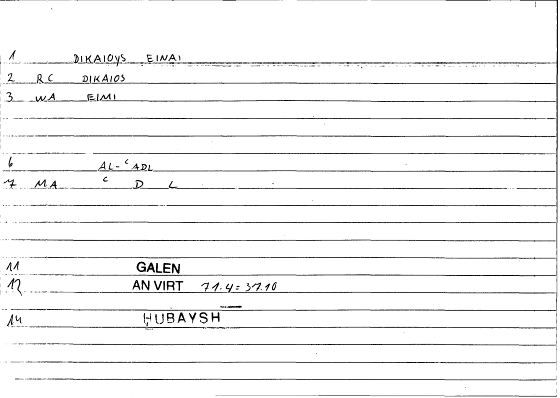 1 DIKAIOYS EINAI
2 RC DIKAIOS
3 WA EIMI
6 AL-ᶜADL
7 MA ᶜ D L
11 GALEN
12 AN VIRT 71.4 = 37.10
14 HUBAYSH